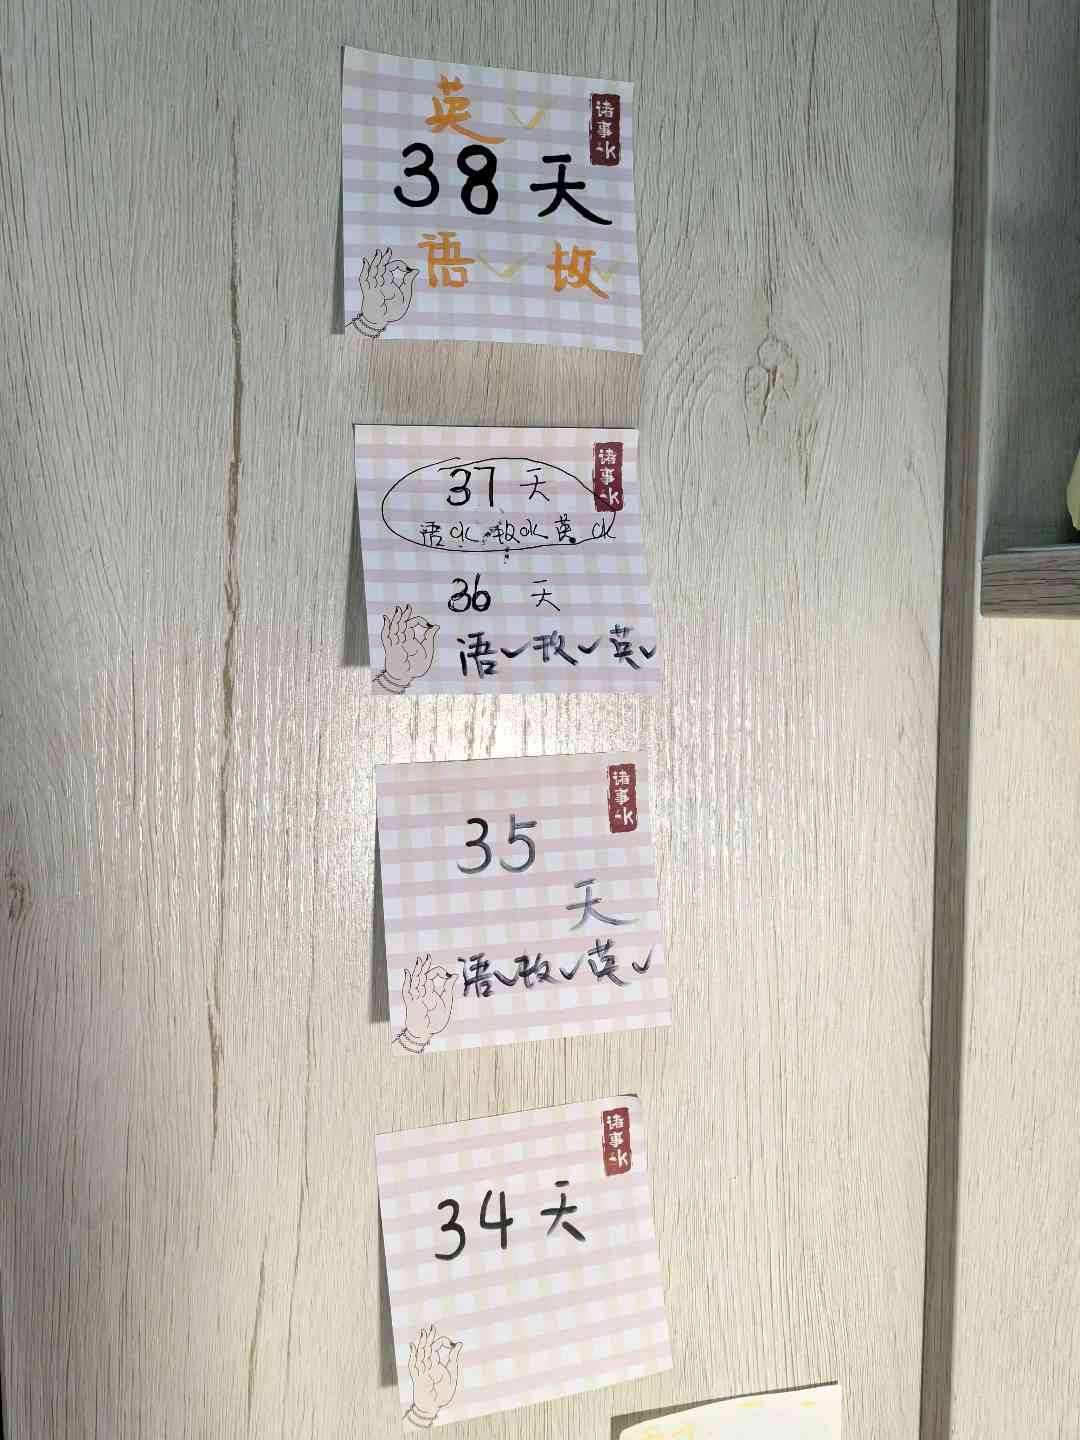 英✓
诸事
ok
38天
语✓ 教✓
诸事
ok
37天
语ok 教ok 英ok
36天
语✓教✓英✓
诸事
ok
35
天
语✓教✓英✓
诸事
ok
34天